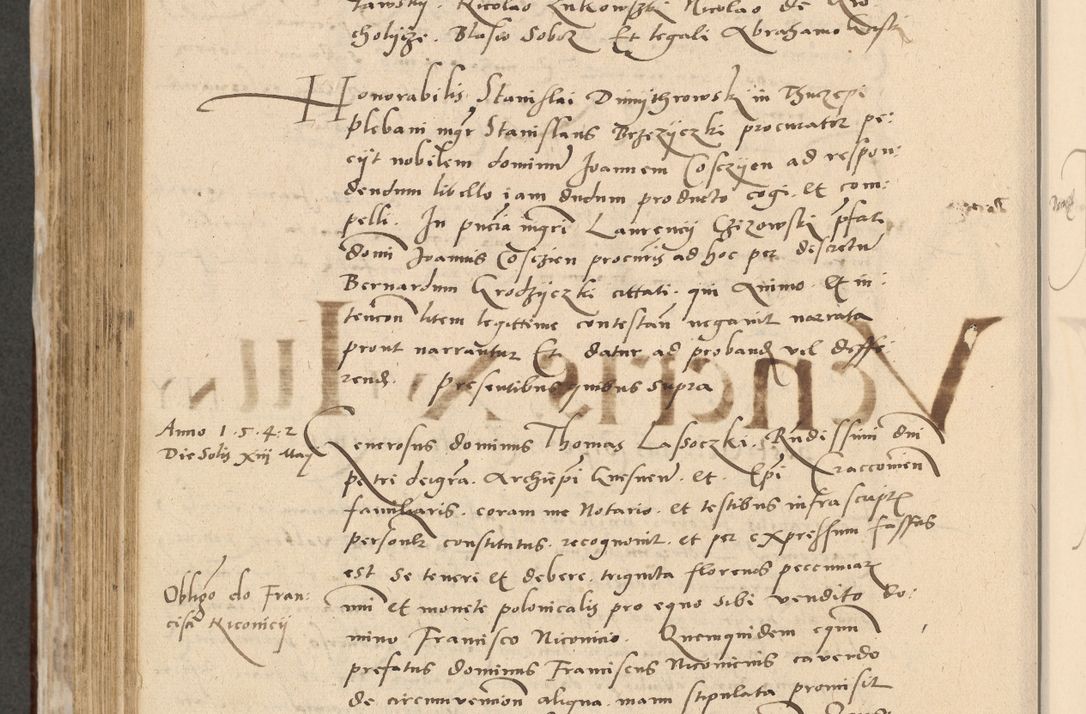 Nicolao Lutkowszki Nicolao de
Blasio Sobor Et legali Abrahamo
Honorabilis Stanislai Dimijthrowskj in Thuczepi
plebani mgr Stanislaus Brzezijczki procurator pe:
cijt nobilem dominum Joannem Cosczijen ad respon:
dendum libello iam dudum producto cogi et com:
pelli. In pncia mgri Laurencij Czizowskj pfati
domi Joannis Cosczien procuris ad hoc per discretum
Bernardum Grodzijczki cittati qui animo et in:
tencon litem legittime contestan negavit narrata
prout narrantur Et datur ad proband vel deffe:
rend. presentibus quibus supra
Anno 1.5.4.2
Die Solis xiiij Maij
Generosus dominus Thomas Lassoczki Rndissimi dni
petri dei gra Archiepi Gnesnen et Epi Craccovien
familiaris coram me Notario et testibus infrascriptis
personlr constitutus recognovit et per expressum fassus
est se teneri et debere triginta florenos peccuniarum
Obligo do Fran:
cisci Niconicij
nui et monete polonicalis pro equo sibi vendito do:
mino Francisco Niconicio. Quemquidem equum
prefatus dominus Franciscus Niconicius cavendo
de circumvencion aliqua manu stipulata promisit
Veneris